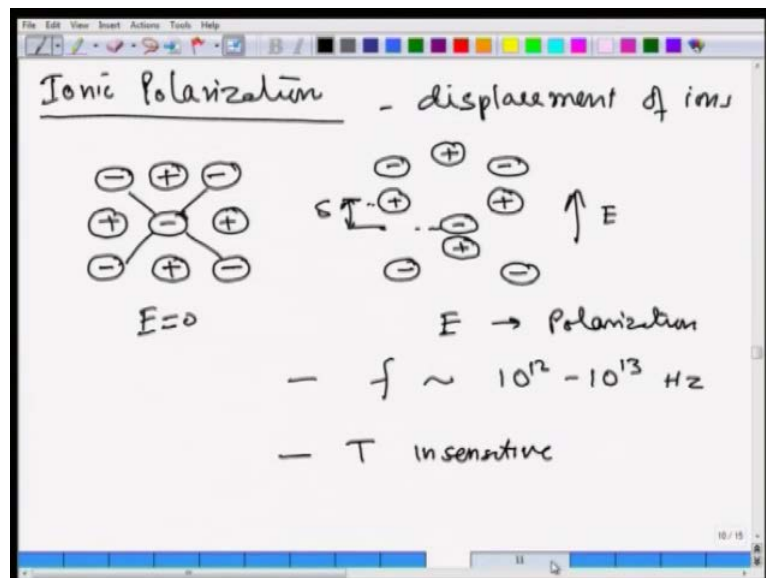 File Edit View Insert Actions Tools Help
Ionic Polarization - displacement of ions
- + -
- + -
+ - +
+ +
δ E
-
+
- + -
- -
E=0
E → Polarization
- f ~ 10^12 - 10^13 Hz
- T insensitive
10/15
11